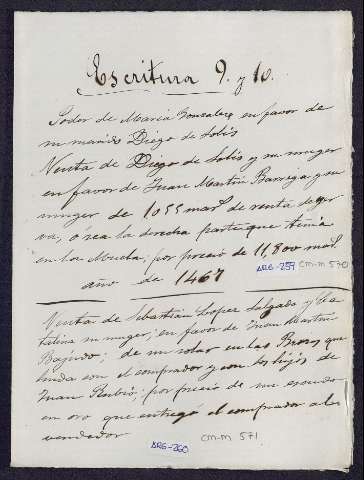 Escritura 9. y 10.
Poder de Maria Gonzalez en favor de
su marido Diego de Solis
Venta de Diego de Solis y su muger
en favor de Juan Martin Barrega y su
muger de 1055 mars de renta de yer
va, ó sea la derecha parte que tenia
en los ; por precio de 11,800 mars
año de 1467
ARG-259 CM-M 570
Venta de Sebastián Lopez Salgado y Ca
talina su muger, en favor de Juan Martin
; de un solar en las que
linda con el comprador y con los hijos de
Juan Rubio; por precio de un escudo
en oro que entregó el comprador a los
vendedor
ARG-260 CM-M 571